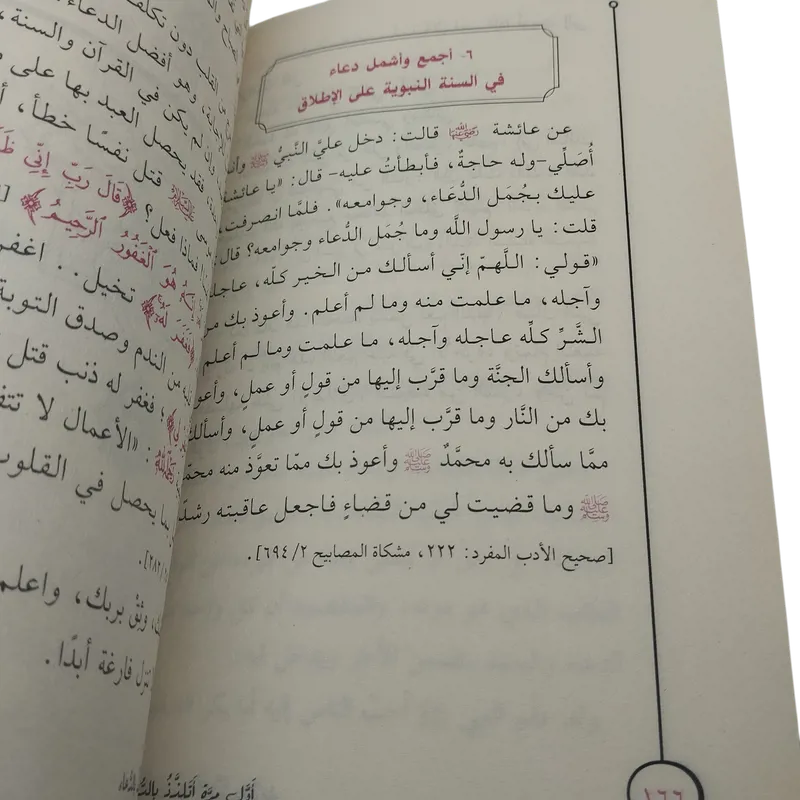 ٦- أجمع وأشمل دعاء
في السنة النبوية على الإطلاق
عن عائشة رضي الله عنها قالت: دخل عليَّ النَّبيُّ ﷺ وأنا
أُصَلِّي-وله حاجةٌ، فأبطأتُ عليه- قال: «يا عائشة
عليك بجُمَل الدُّعَاء، وجوامعه». فلمَّا انصرفت،
قلت: يا رسول اللَّه وما جُمَل الدُّعاء وجوامعه؟ قال:
«قولي: اللَّهمّ إنّي أسألك من الخير كلّه، عاجله
وآجله، ما علمت منه وما لم أعلم. وأعوذ بك من
الشَّرِّ كلِّه عاجله وآجله، ما علمت وما لم أعلم
وأسألك الجنَّة وما قرَّب إليها من قولٍ أو عملٍ، وأعوذ
بك من النَّار وما قرَّب إليها من قولٍ أو عملٍ، وأسألك
ممَّا سألك به محمَّدٌ ﷺ وأعوذ بك ممّا تعوَّذ منه محمّد
ﷺ وما قضيت لي من قضاءٍ فاجعل عاقبته رشدًا
[صحيح الأدب المفرد: ٢٢٢، مشكاة المصابيح ٢/ ٦٩٤].
١٦٦
القلب دون
وهو أفضل الدعاء
يكن في القرآن والسنة،
يحصل العبد بها على
قتل نفسًا خطأ،
فماذا فعل؟ ﴿قَالَ رَبِّ إِنِّي
هُوَ ٱلْغَفُورُ ٱلرَّحِيمُ﴾
تخيل.. اغفر
من الندم وصدق التوبة
فغفر له ذنب قتل
: «الأعمال لا
يحصل في القلوب
٢٨٢].
وثِقْ بربك، واعلم
فارغة أبدًا.
أوَّل مرة أتلذَّذُ بالدُّعاء